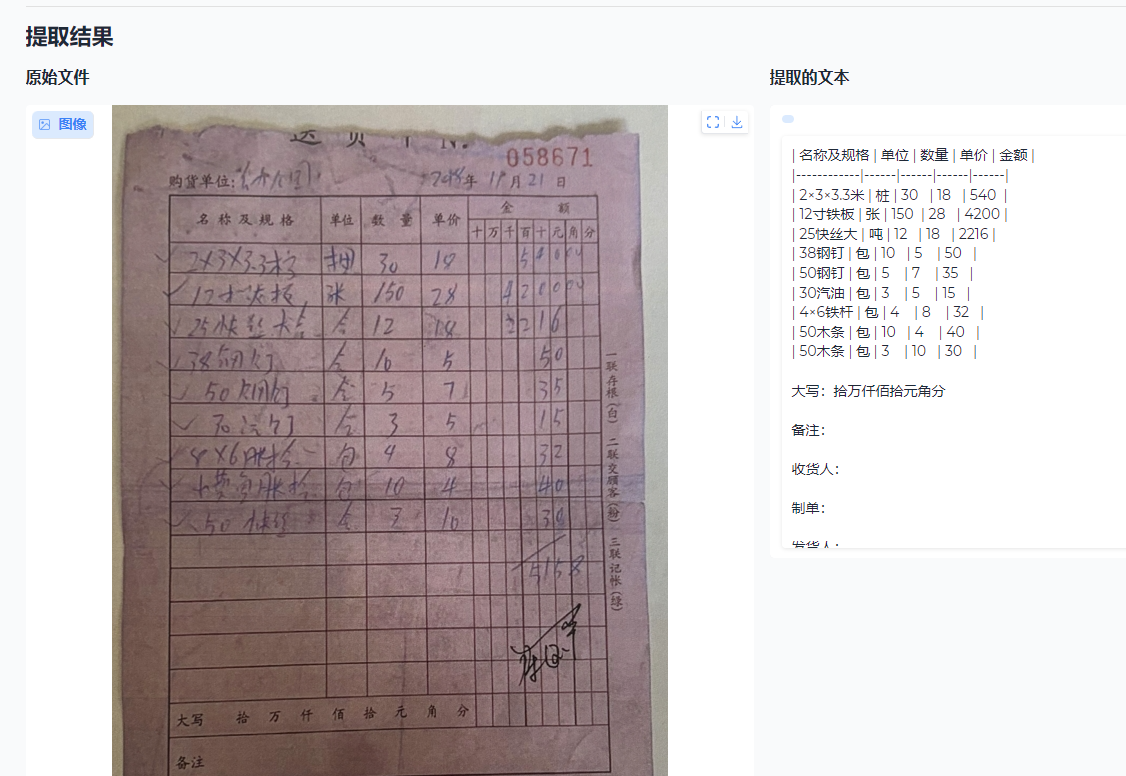 提取结果
原始文件
提取的文本
图像
送货单 No.
058671
购货单位:
年 11月21日
名称及规格 单位 数量 单价 金额
十万千百十元角分
2×3×3.3 30 18 54000
12 张 150 28 420000
25 12 18 216
38 10 5 50
50 5 7 35
3 5 15
包 4 8 32
包 10 4 40
50 3 10 30
5158
大写 拾 万 仟 佰 拾 元 角 分
备注
一联存根(白) 二联交顾客(粉) 三联记帐(绿)
| 名称及规格 | 单位 | 数量 | 单价 | 金额 |
|------------|------|------|------|------|
| 2×3×3.3米 | 桩 | 30 | 18 | 540 |
| 12寸铁板 | 张 | 150 | 28 | 4200 |
| 25快丝大 | 吨 | 12 | 18 | 2216 |
| 38钢钉 | 包 | 10 | 5 | 50 |
| 50钢钉 | 包 | 5 | 7 | 35 |
| 30汽油 | 包 | 3 | 5 | 15 |
| 4×6铁杆 | 包 | 4 | 8 | 32 |
| 50木条 | 包 | 10 | 4 | 40 |
| 50木条 | 包 | 3 | 10 | 30 |
大写：拾万仟佰拾元角分
备注：
收货人：
制单：
发货人：